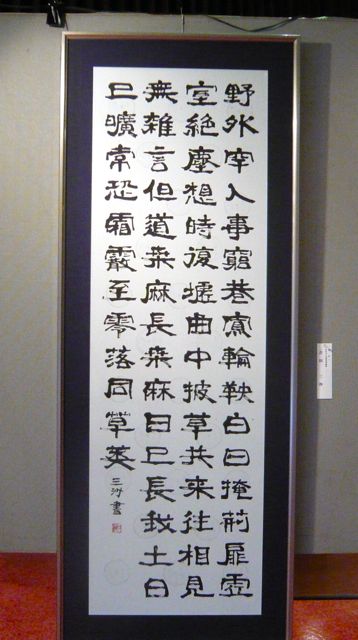 野外罕人事窮巷寡輪鞅白日掩荊扉虛
室絶塵想時復墟曲中披草共来往相見
無雜言但道桒麻長桒麻日已長我土日
已曠常恐霜霰至零落同草莽
三洲書